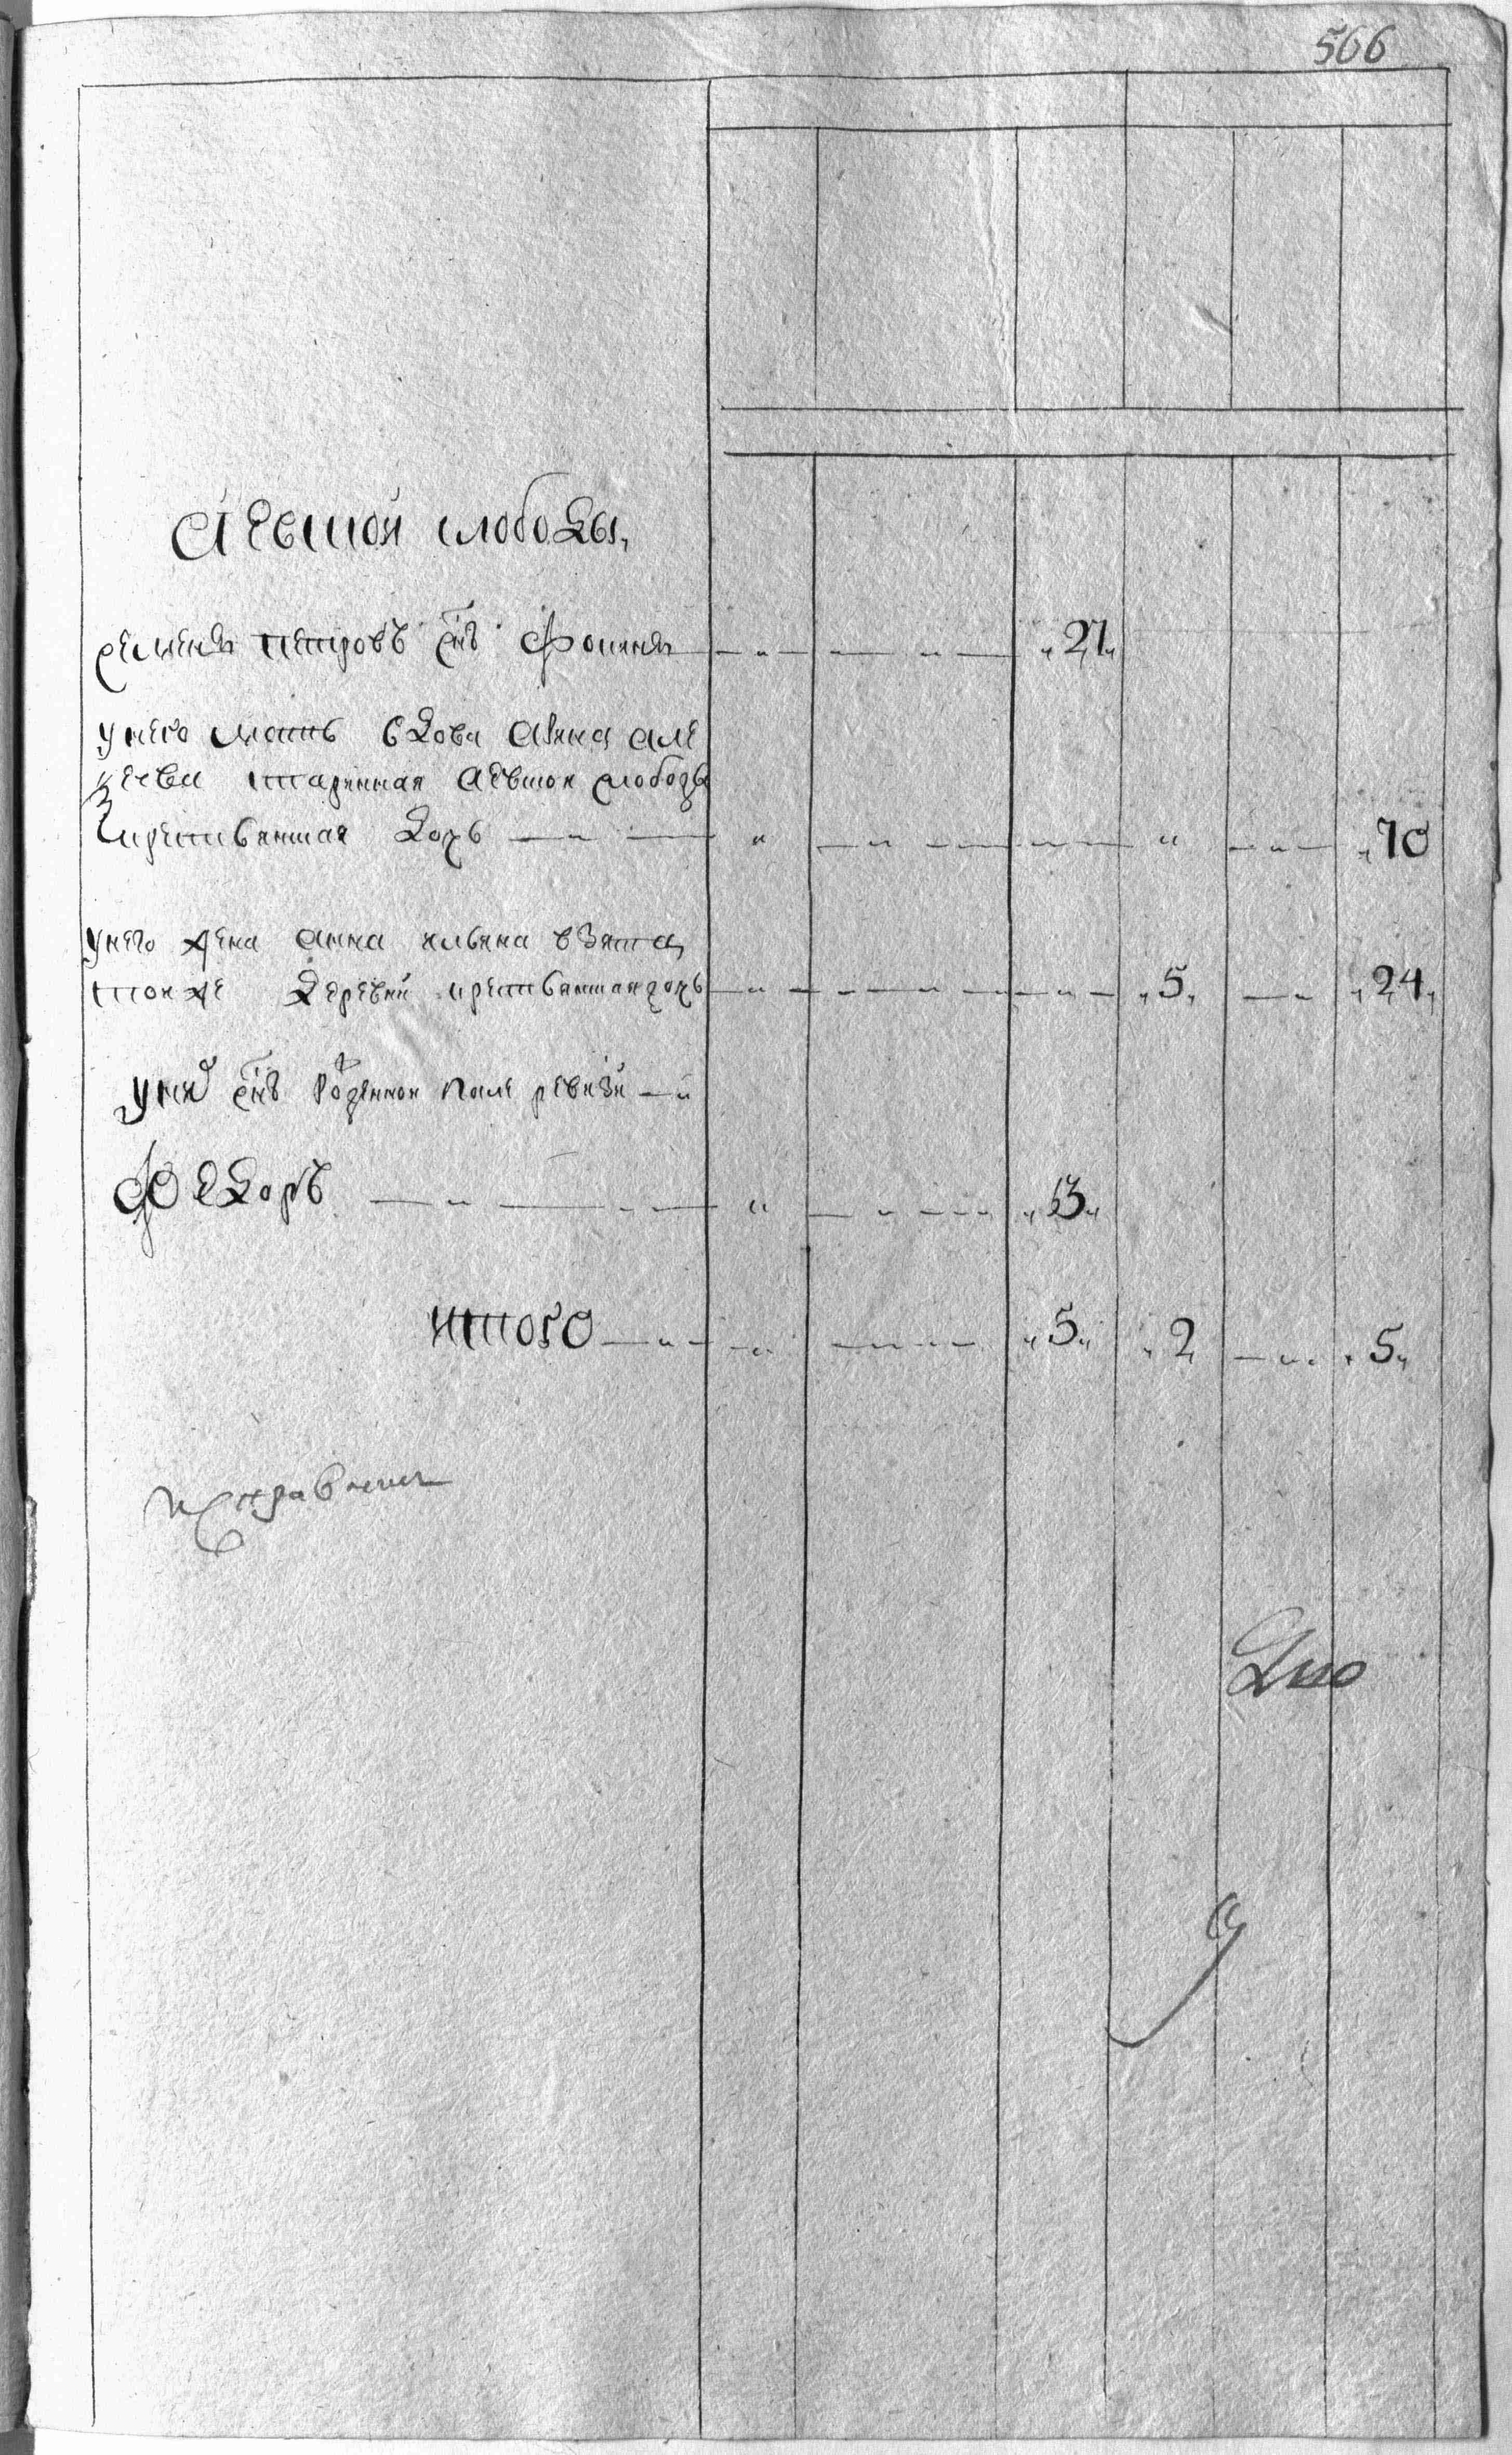 566
Аевской слободы,
семенъ петровъ снъ фоминъ „27„
у него мать вдова анна але
ѯеева старинная аевской слободы
крестьянская дочь „70
у него жена анна ильина взята
тоиже деревни крестьянская дочь „5„ „24„
у ниⷯ снъ рожденной после ревизи
Ѳедоръ „13„
итого „5„ „2 „5„